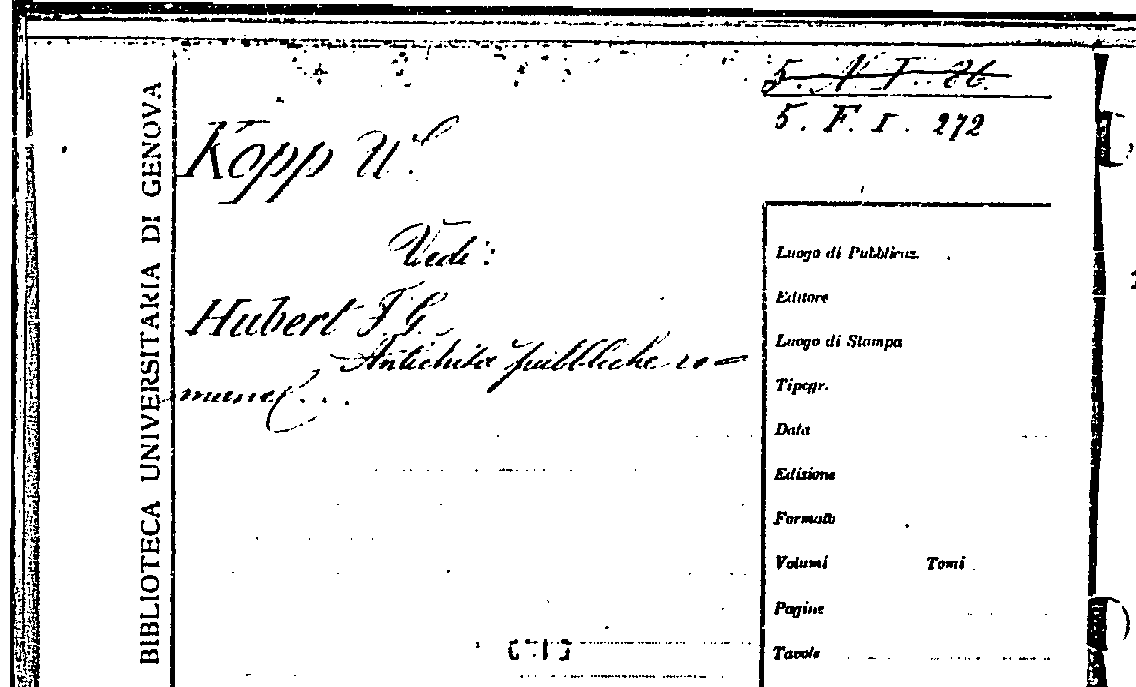 BIBLIOTECA UNIVERSITARIA DI GENOVA
5. N. I. 86.
5. F. I. 272
Kopp W.
Vedi:
Hubert F. G.
Antichità pubbliche ro=
mane. . .
Luogo di Pubblicaz.
Editore
Luogo di Stampa
Tipogr.
Data
Edizione
Formato
Volumi Tomi
Pagine
Tavole